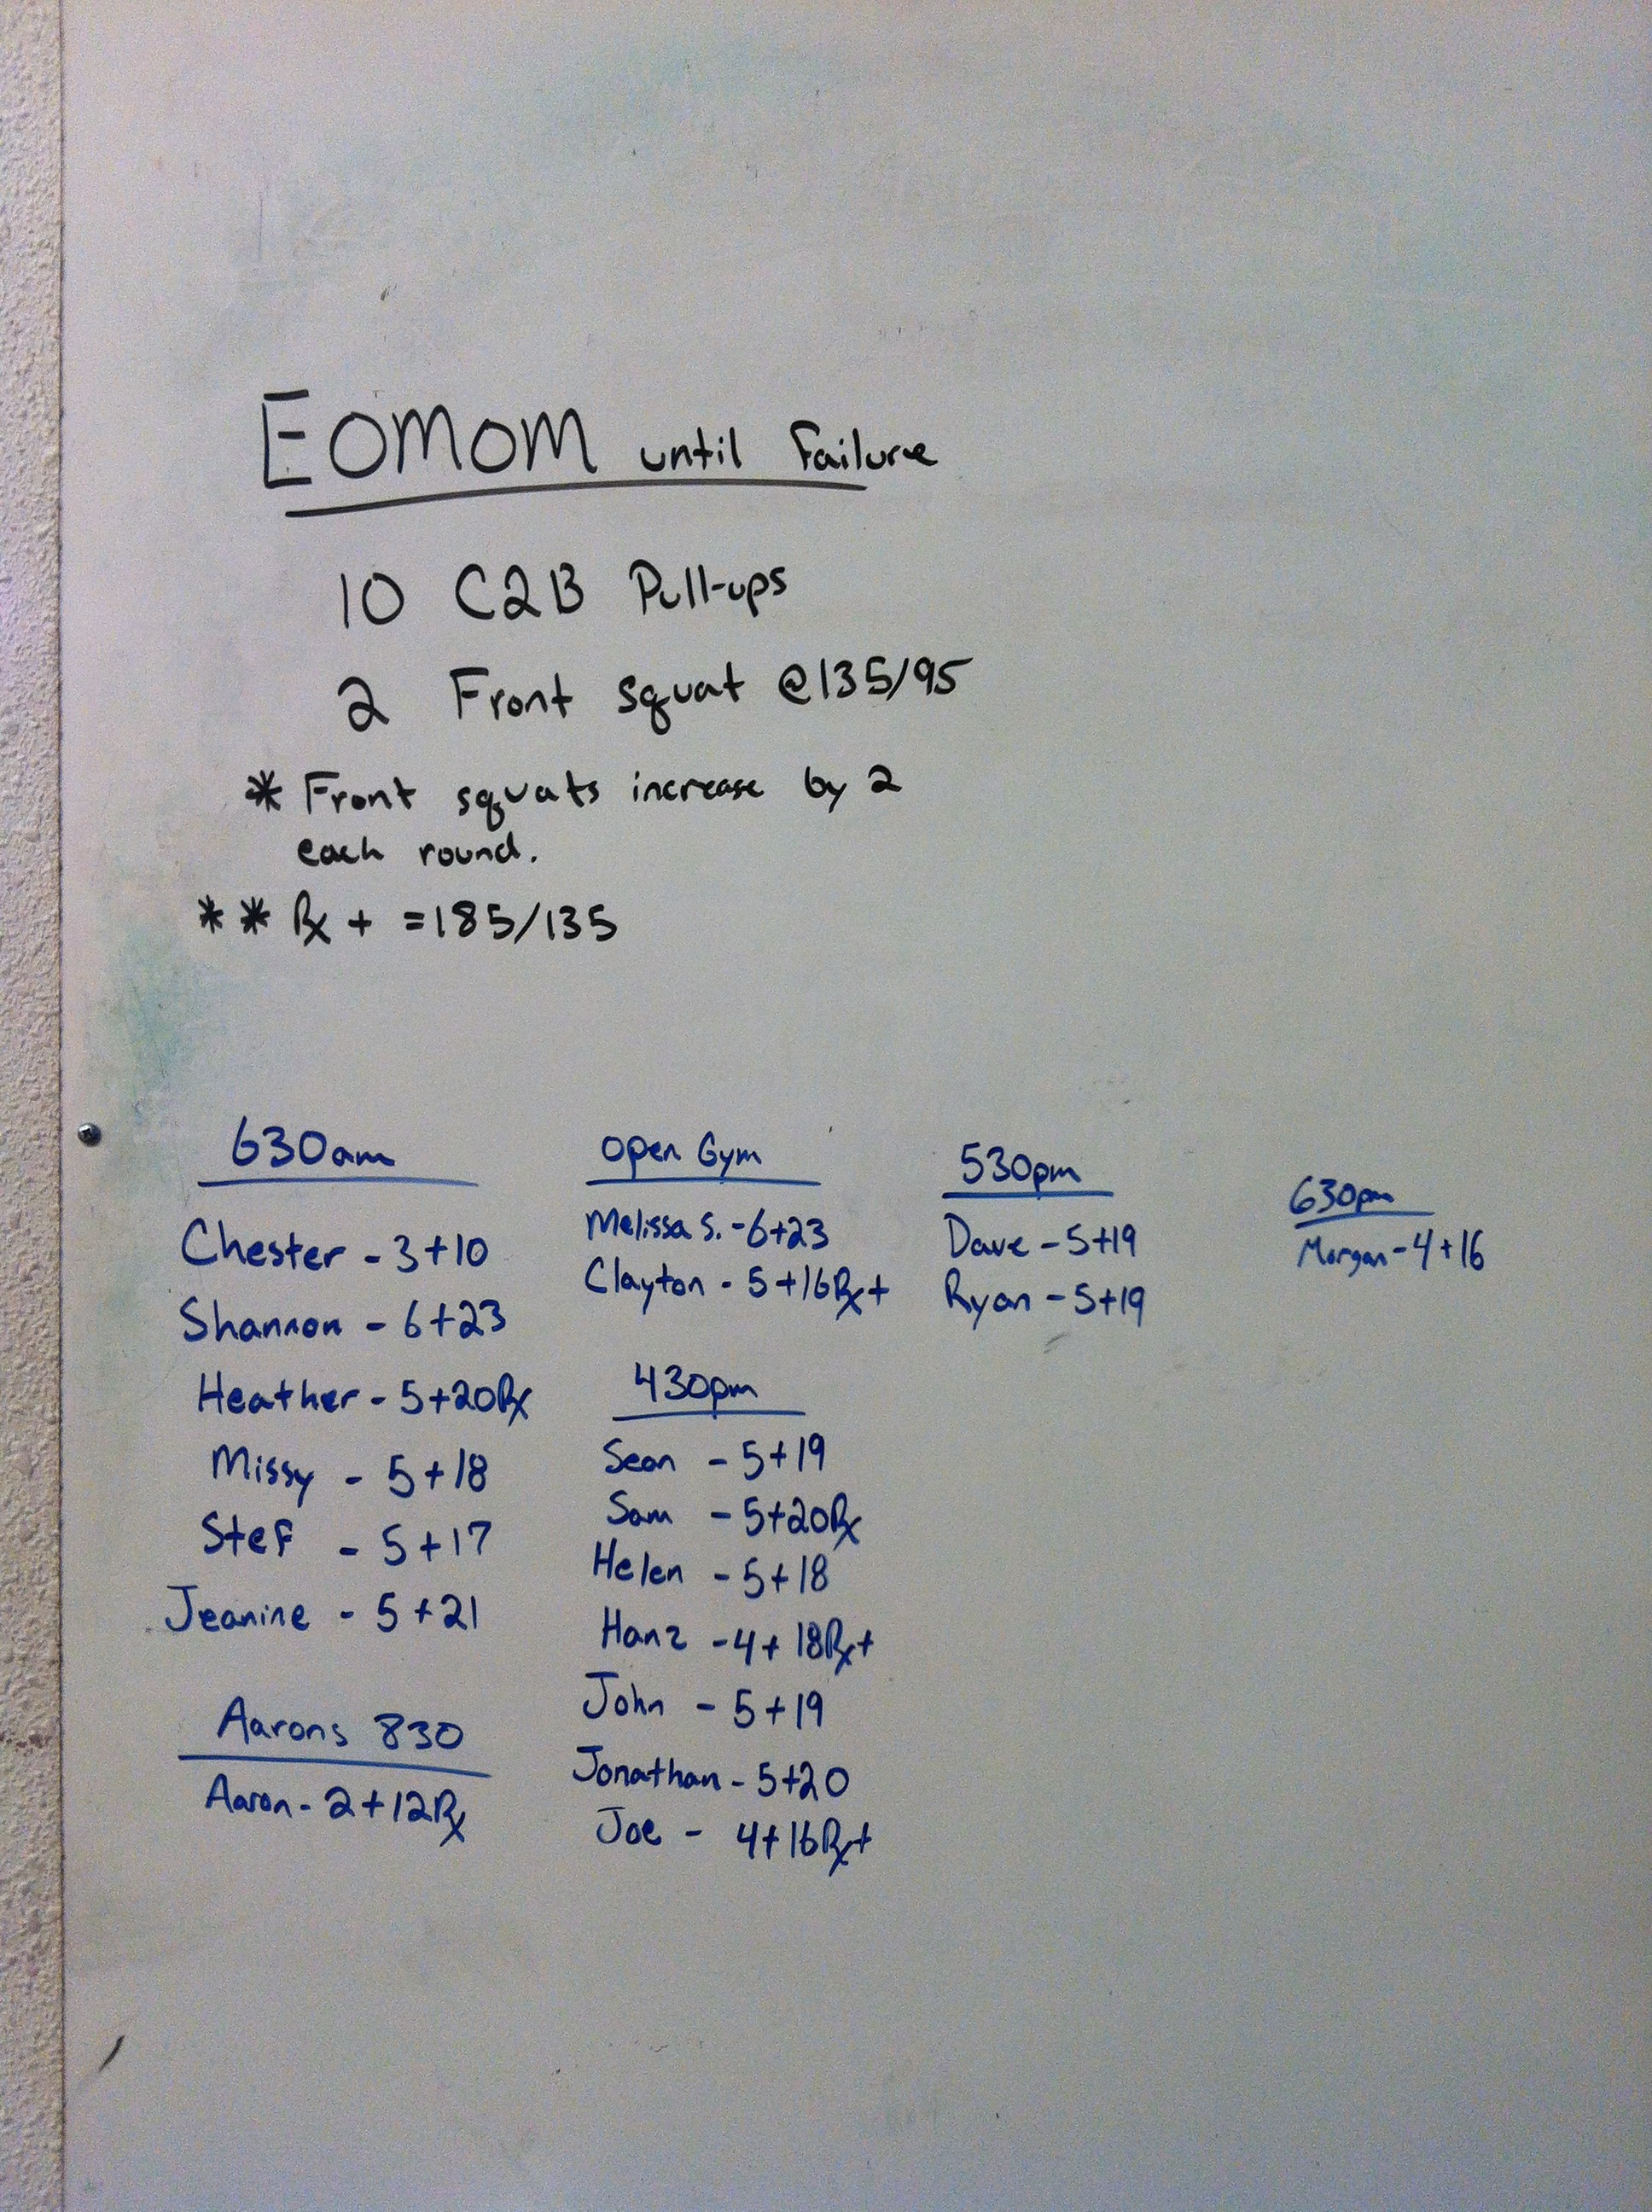 EOMOM until Failure
10 C2B Pull-ups
2 Front squat @135/95
* Front squats increase by 2
each round.
** Rx + =185/135
630am
Chester - 3+10
Shannon - 6+23
Heather - 5+20Rx
Missy - 5+18
Stef - 5+17
Jeanine - 5+21
Aarons 830
Aaron - 2+12Rx
open Gym
Melissa S. - 6+23
Clayton - 5+16Rx+
430pm
Sean - 5+19
Sam - 5+20Rx
Helen - 5+18
Hanz - 4+18Rx+
John - 5+19
Jonathan - 5+20
Joe - 4+16Rx+
530pm
Dave - 5+19
Ryan - 5+19
630pm
Morgan - 4+16